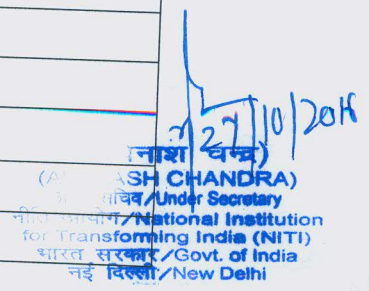 27/10/2016
नाश चन्द्र)
(A ASH CHANDRA)
सचिव/Under Secretary
नीति आयोग/National Institution
for Transforming India (NITI)
भारत सरकार/Govt. of India
नई दिल्ली/New Delhi